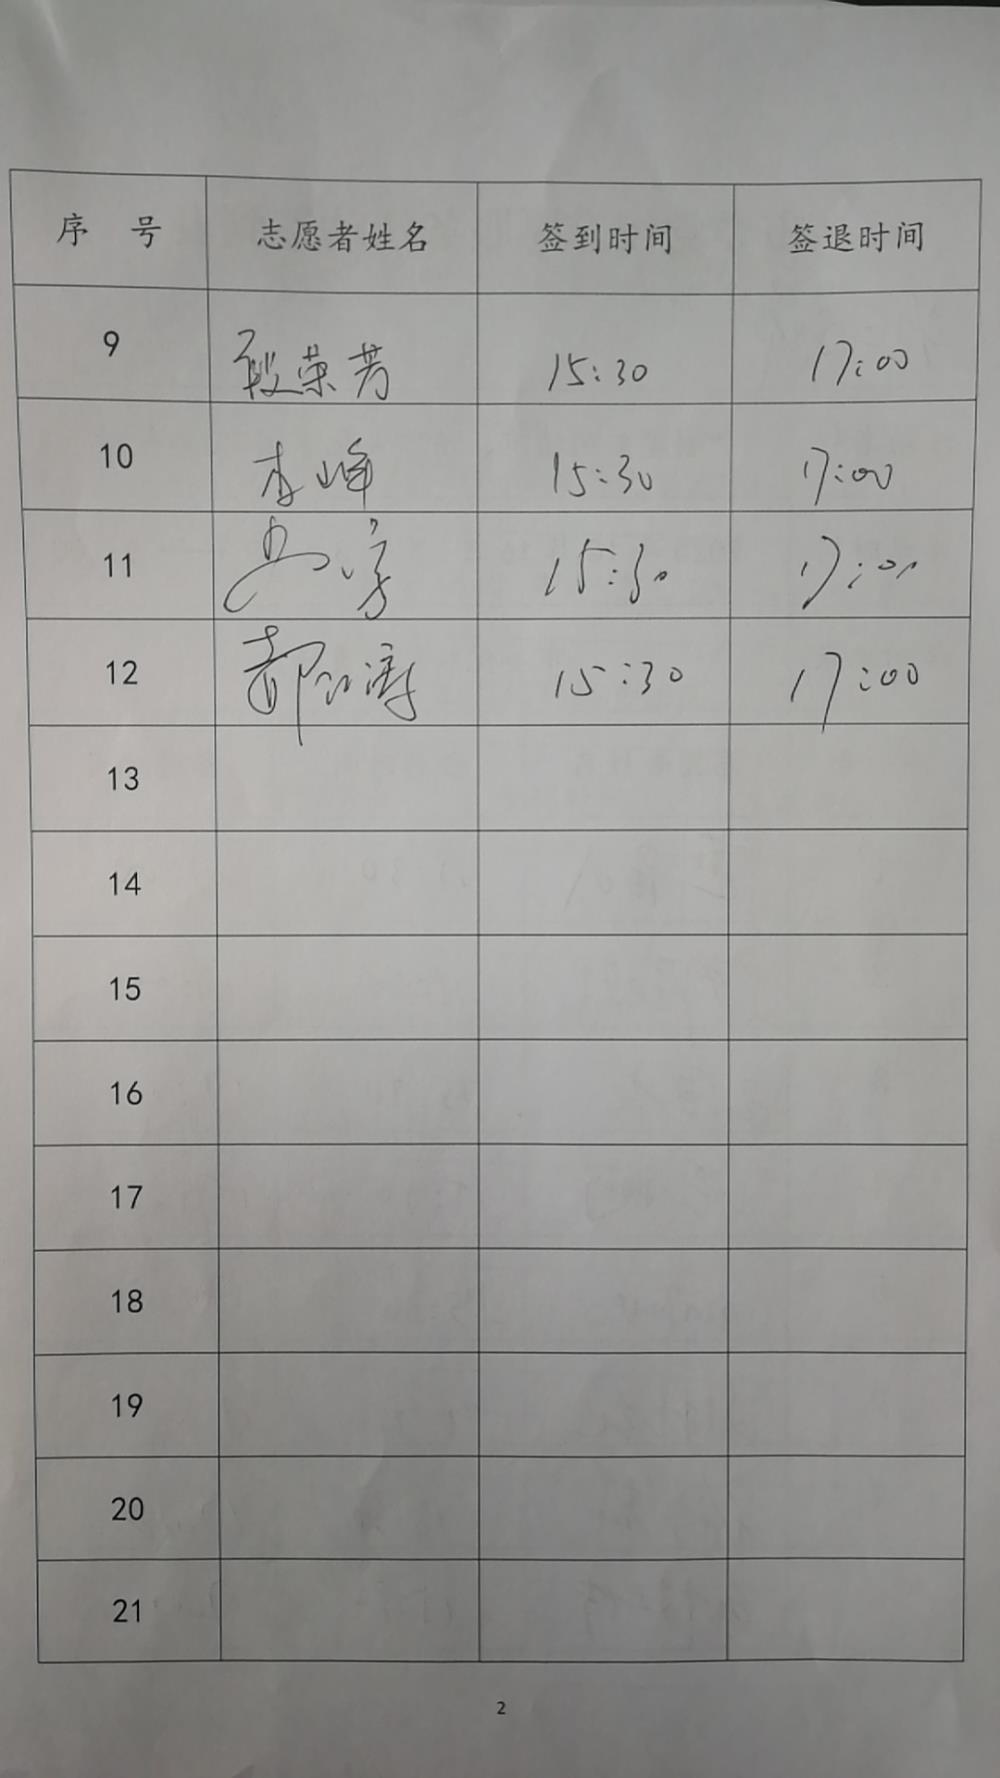 序 号 志愿者姓名 签到时间 签退时间
9 段荣芳 15:30 17:00
10 李峰 15:30 17:00
11 15:30 17:00
12 15:30 17:00
13
14
15
16
17
18
19
20
21
2